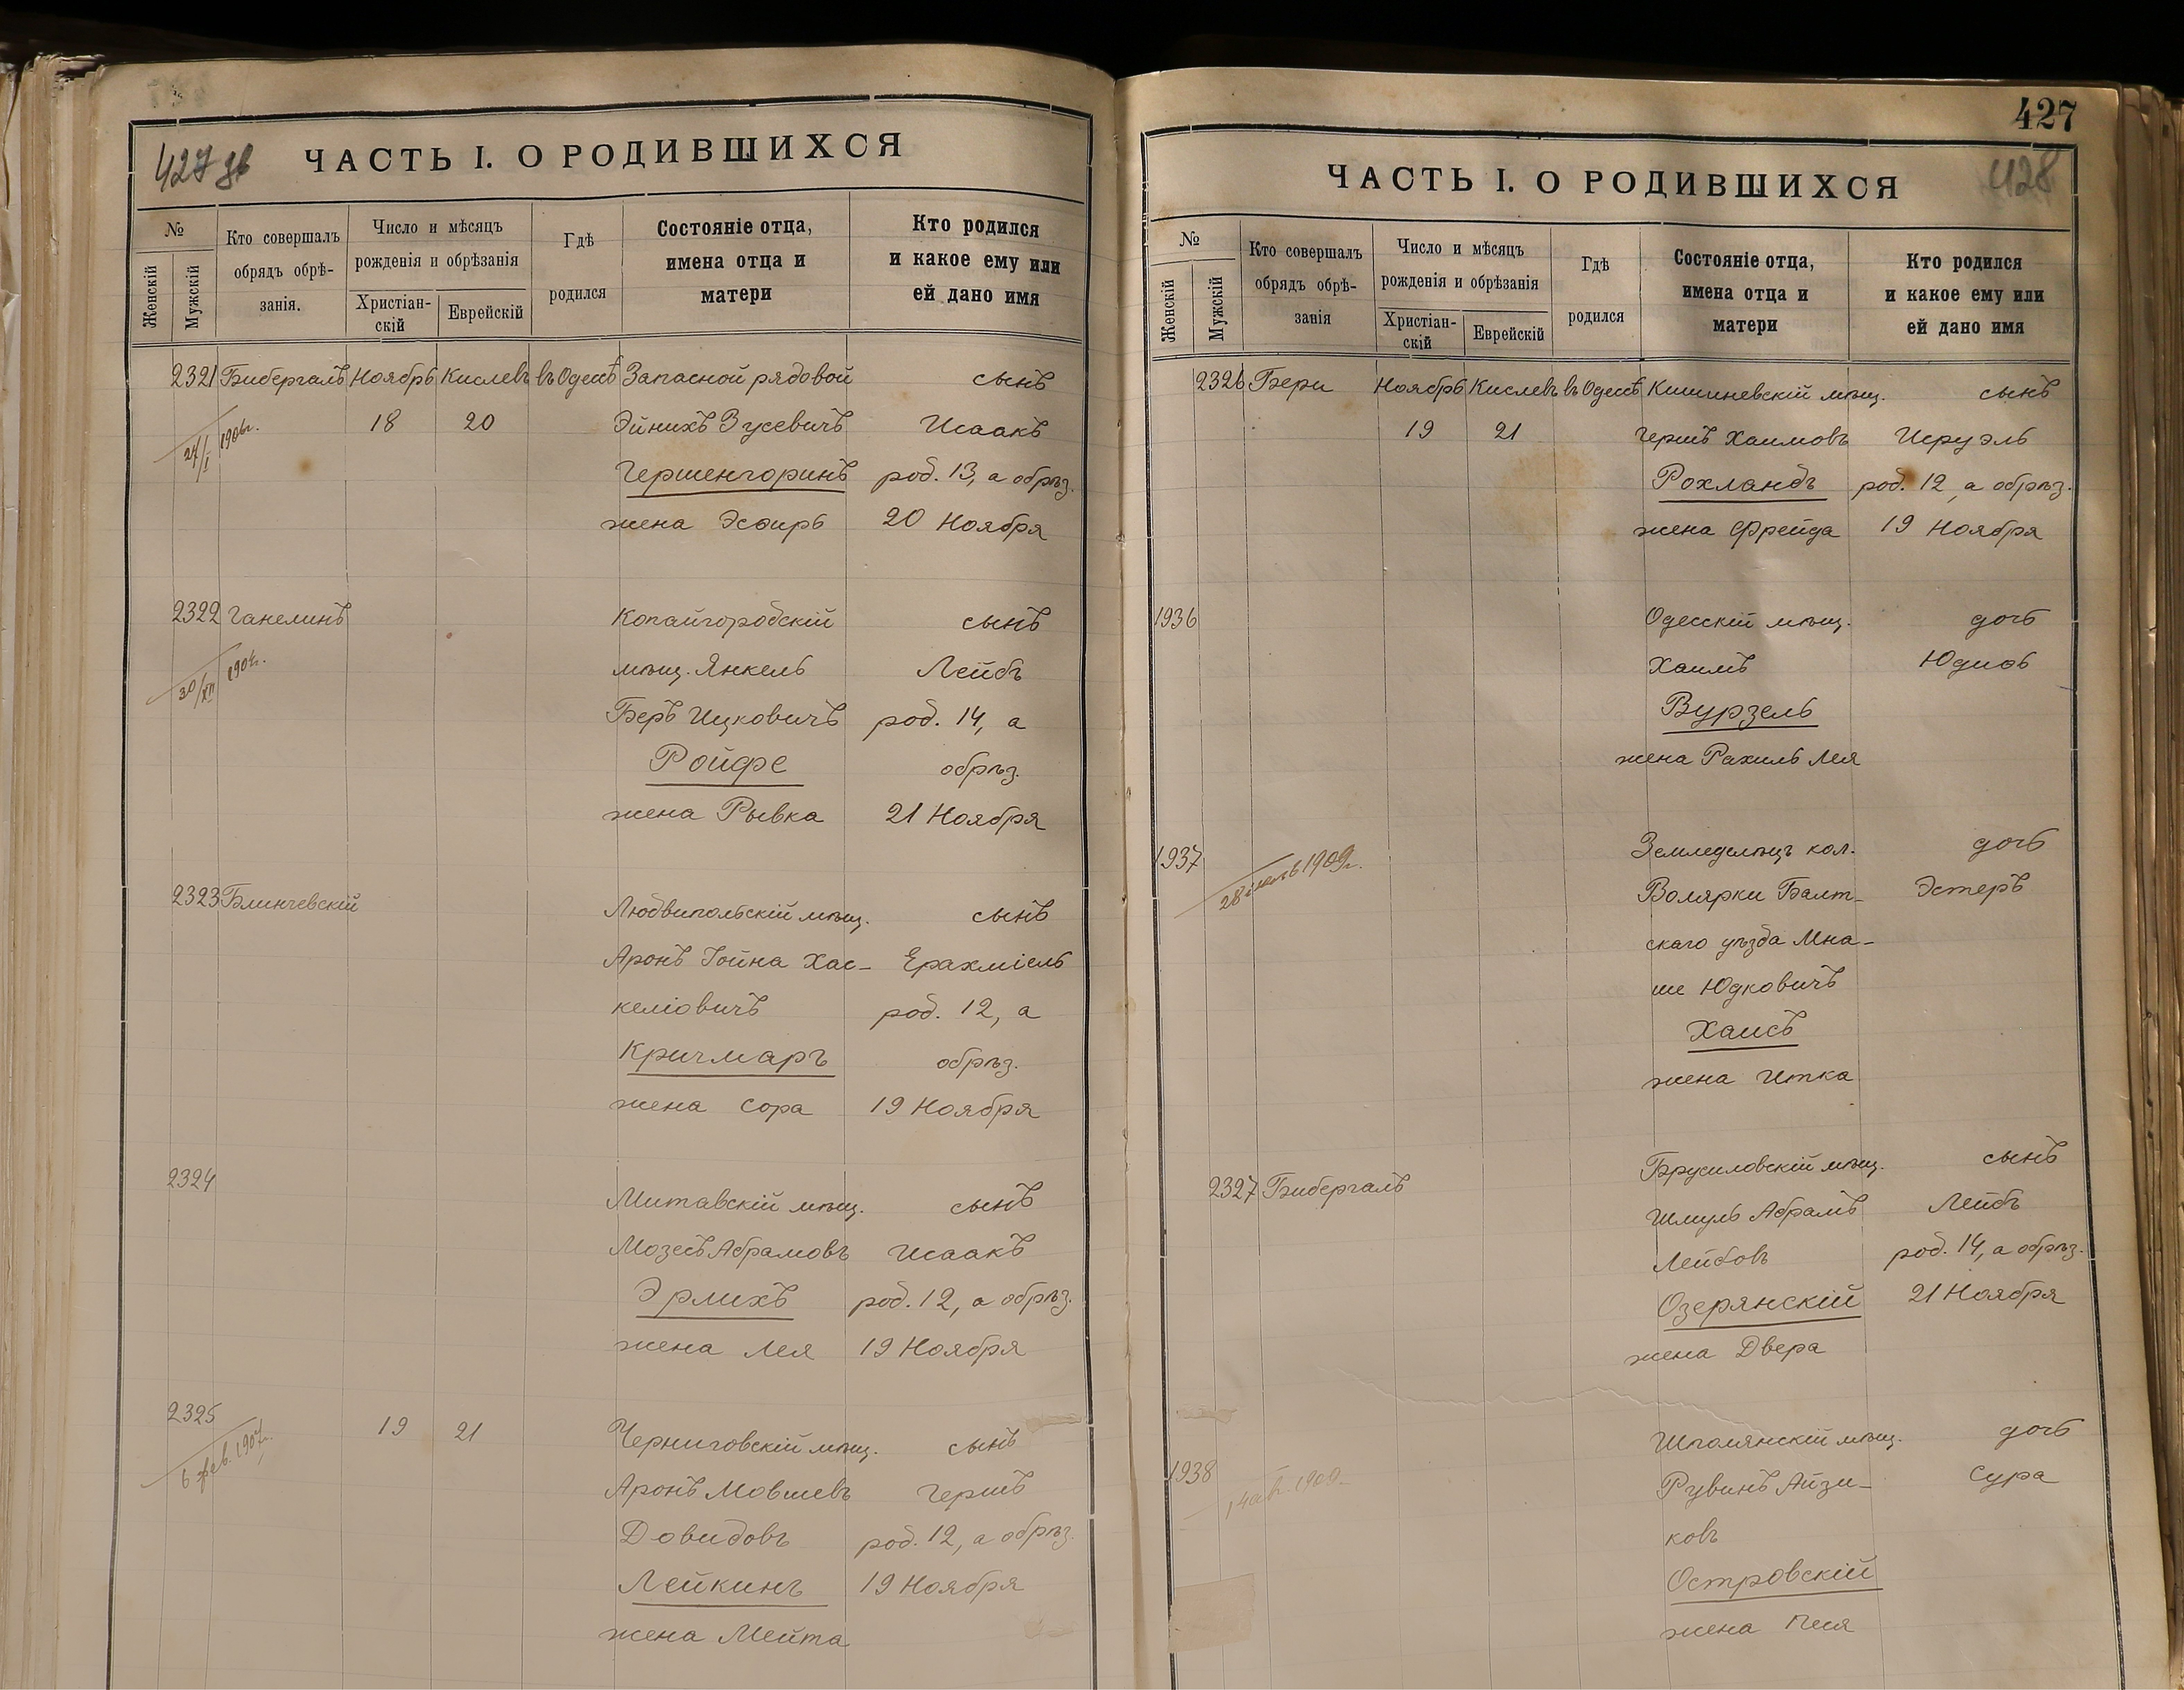 427 зв
ЧАСТЬ I. О РОДИВШИХСЯ
№
Женскій
Мужскій
Кто совершалъ
обрядъ обрѣ-
занія.
Число и мѣсяцъ
рожденія и обрѣзанія
Христіан-
скій
Еврейскій
Гдѣ
родился
Состояніе отца,
имена отца и
матери
Кто родился
и какое ему или
ей дано имя
2321 Бибергалъ Ноябрь Кислевъ въ Одессѣ Запасной рядовой сынъ
18 20 Эйнихъ Зусевичъ Исаакъ
24/I 1906г.
Гершенгоринъ род. 13, а обрѣз.
жена Эсѳирь 20 Ноября
2322 Ганелинъ Копайгородскій сынъ
30/XII 190
мѣщ. Янкель Лейбъ
Беръ Ицковичъ род. 14, а
Ройфе обрѣз.
жена Рывка 21 Ноября
2323 Блинчевскій Людвипольскій мѣщ. сынъ
Аронъ Іойна Хас- Ерахміель
келіовичъ род. 12, а
Кричмаръ обрѣз.
жена Сора 19 Ноября
2324 Митавскій мѣщ. сынъ
Мозесъ Абрамовъ Исаакъ
Эрлихъ род. 12, а обрѣз.
жена Лея 19 Ноября
2325 19 21 Черниговскій мѣщ. сынъ
6 фев. 1907г.
Аронъ Мовшевъ Гершъ
Довидовъ род. 12, а обрѣз.
Лейкинъ 19 Ноября
жена Мейта
427
428
ЧАСТЬ I. О РОДИВШИХСЯ
№
Женскій
Мужскій
Кто совершалъ
обрядъ обрѣ-
занія
Число и мѣсяцъ
рожденія и обрѣзанія
Христіан-
скій
Еврейскій
Гдѣ
родился
Состояніе отца,
имена отца и
матери
Кто родился
и какое ему или
ей дано имя
2326 Бери Ноябрь Кислевъ въ Одессѣ Кишиневскій мѣщ. сынъ
19 21 Гершъ Хаимовъ Исруэль
Рохландъ род. 12, а обрѣз.
жена Фрейда 19 Ноября
1936 Одесскій мѣщ. дочь
Хаимъ Юдиѳь
Вурзель
жена Рахиль Лея
1937 Земледѣлецъ кол. дочь
28 1909г.
Волярки Балт- Эстеръ
скаго уѣзда Мна-
ше Юдковичъ
Хаисъ
жена Итка
2327 Бибергалъ Брусиловскій мѣщ. сынъ
Шмуль Абрамъ Лейбъ
Лейбовъ род. 14, а обрѣз.
Озерянскій 21 Ноября
жена Двера
1938 Шполянскій мѣщ. дочь
Рувинъ Айзи- Сура
ковъ
Островскій
жена Песя